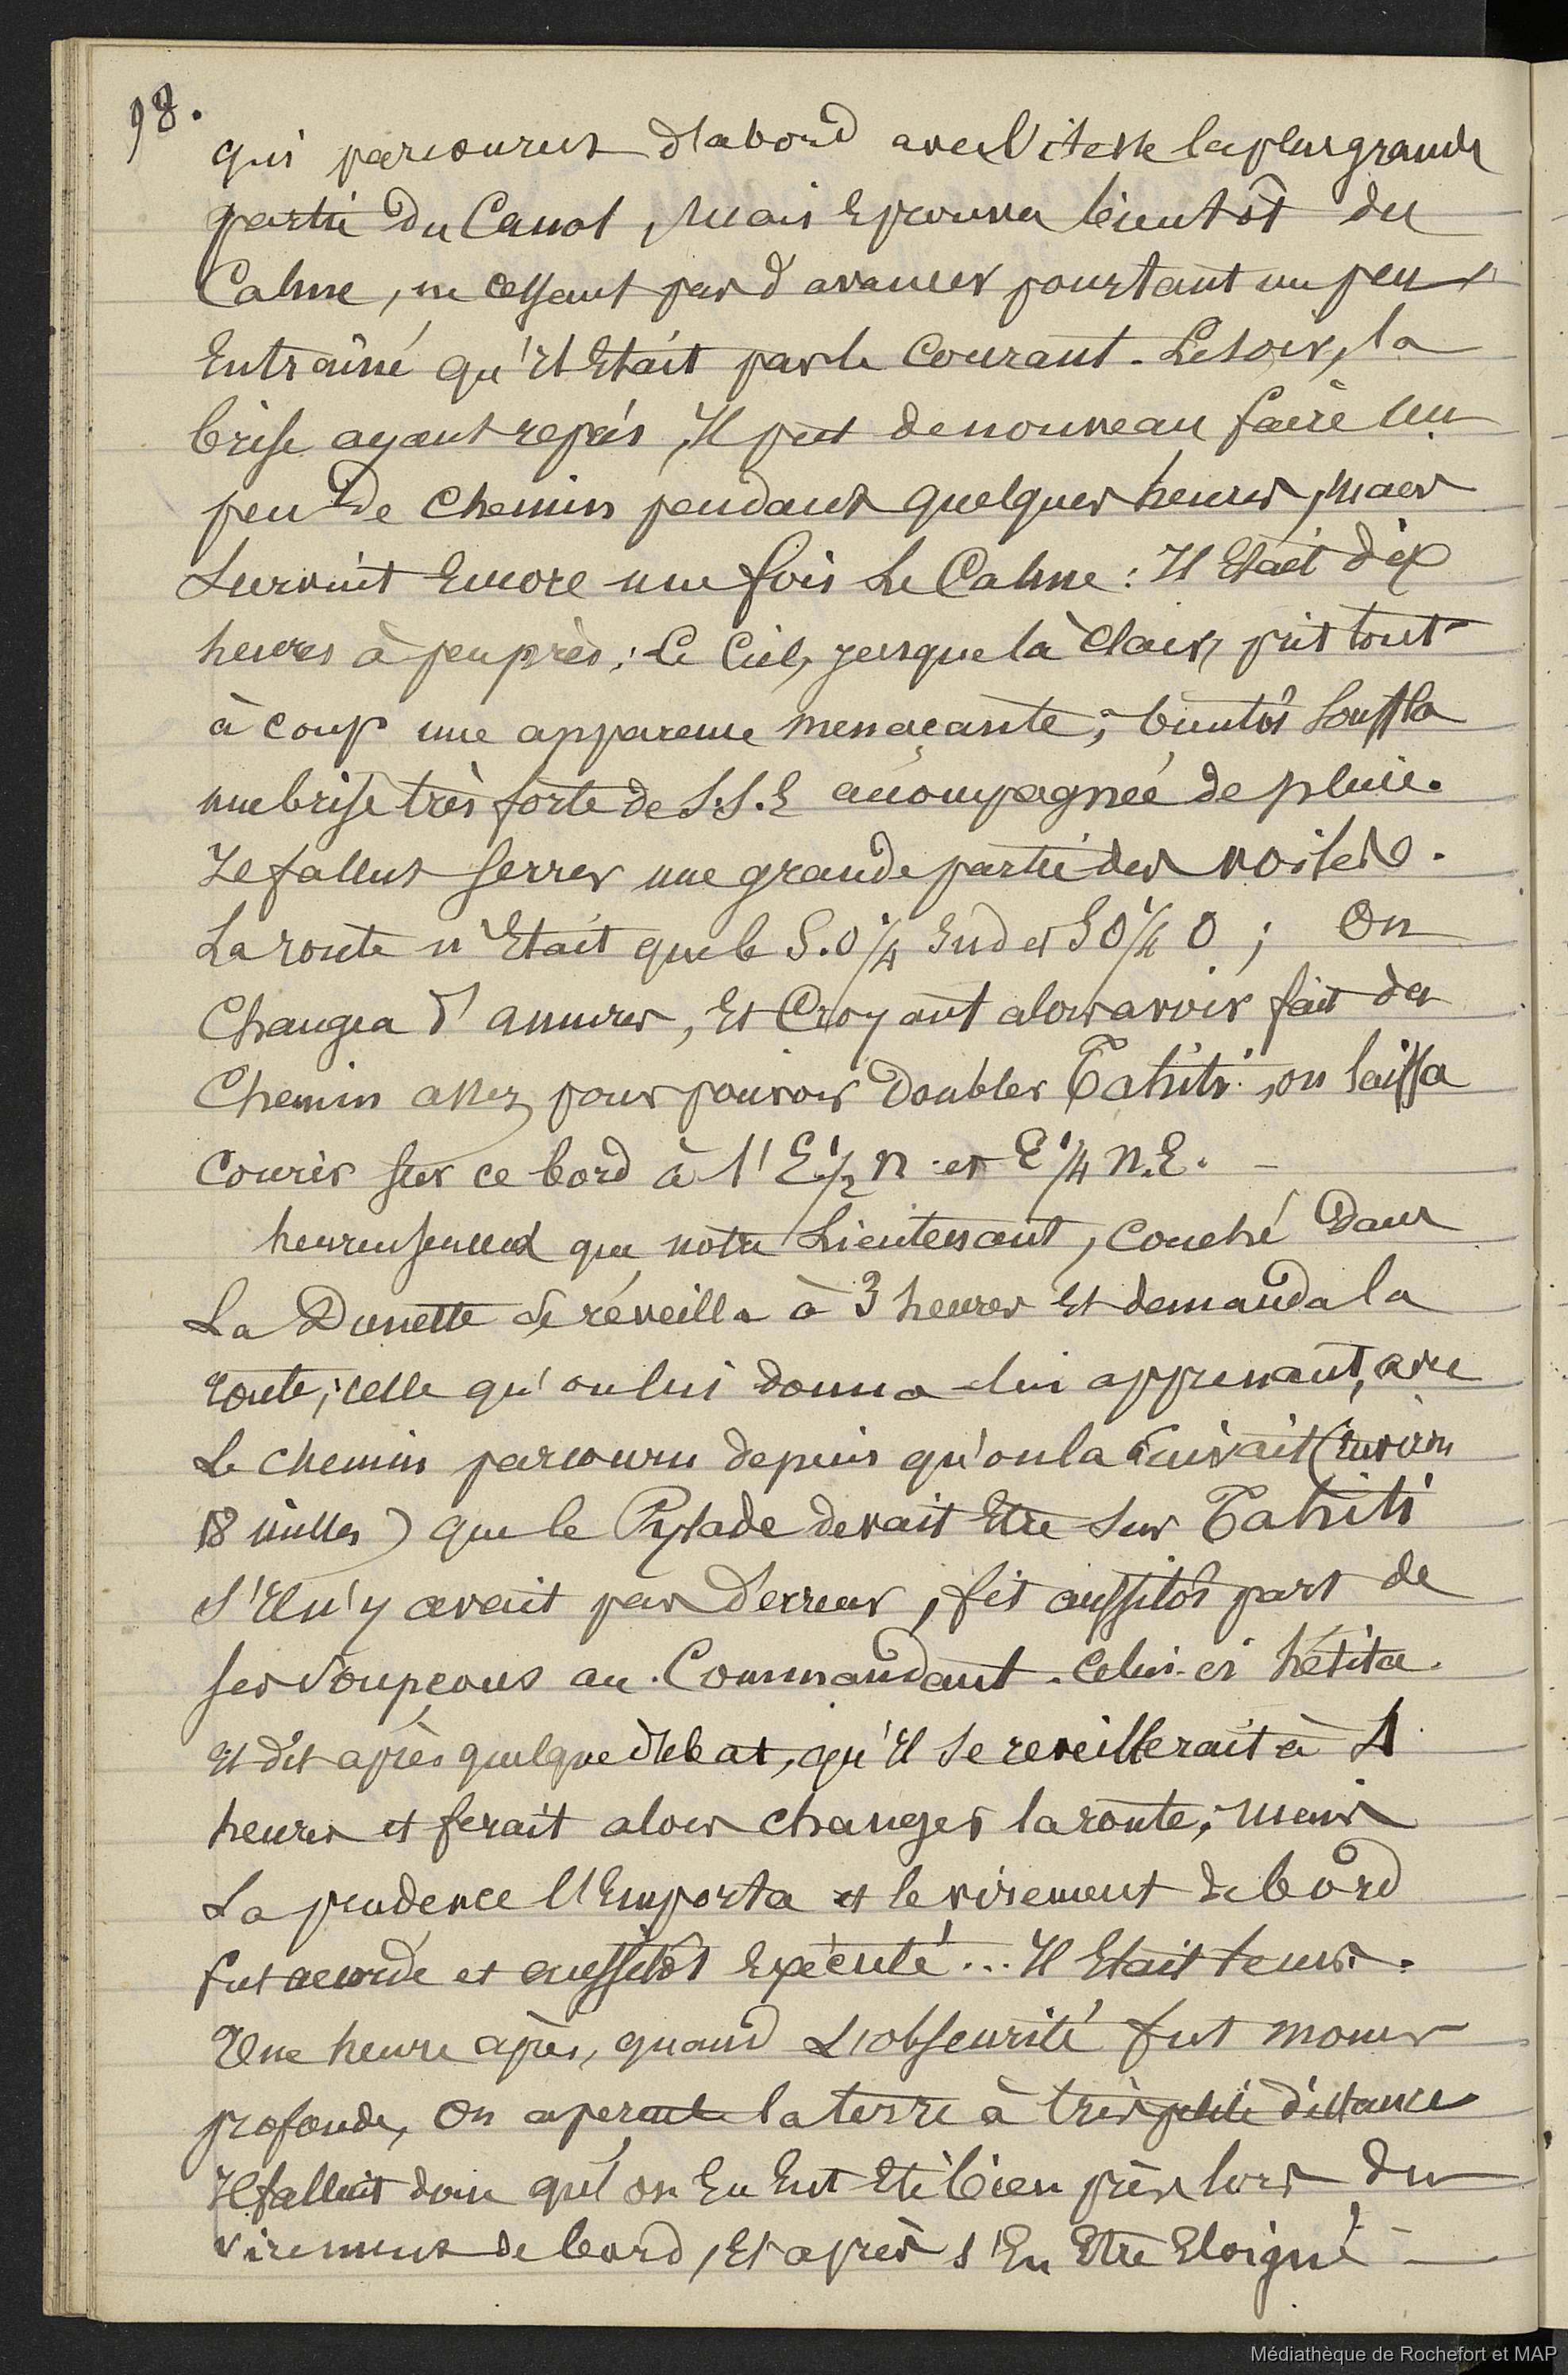 98.
qui parcourut d'abord avec Vitesse la plus grande
partie du Canal, Mais Eprouva bientôt du
Calme, ne cessant pas d'avancer pourtant un peu
Entraîné qu'Il Etait par le Courant. Le soir, la
brise ayant repris, Il put de nouveau faire un
peu de Chemin pendant quelques heures, Mais
Survint Encore une fois Le Calme : Il Etait dix
heures à peu près ; Le Ciel, jusque là Clair, prit tout
à coup une apparence menaçante ; bientôt souffla
une brise très forte de S.S.E accompagnée de pluie.
Il fallut serrer une grande partie des voiles.
La route n'Etait que le S.O 1/4 Sud et S O 1/4 O ; On
Changea d'amures, Et Croyant alors avoir fait du
Chemin assez pour pouvoir Doubler Tahiti, on laissa
Courir sur ce bord à l'E 1/2 N et E 1/4 N.E. -
heureusement que notre Lieutenant, Couché Dans
La Dunette se réveilla à 3 heures Et demanda la
route ; celle qu'on lui donna lui apprenant, avec
Le chemin parcouru depuis qu'on la suivait (environ
18 milles) que le Pylade devait Etre sur Tahiti
S'Il n'y avait pas d'erreur, fit aussitôt part de
ses Soupçons au Commandant. Celui-ci hésita
Et dit après quelque débat, qu'Il se reveillerait à 4
heures et ferait alors changer la route ; mais
La prudence l'Emporta et le virement de bord
fut accordé et aussitôt Exécuté ... Il Etait tems.
Une heure après, quand L'obscurité fut moins
profonde, On aperçut la terre à très petite distance
Il fallait donc qu'on En Eut Eté bien près lors du
virement de bord, Et après s'En Etre Eloigné -
Médiathèque de Rochefort et MAP